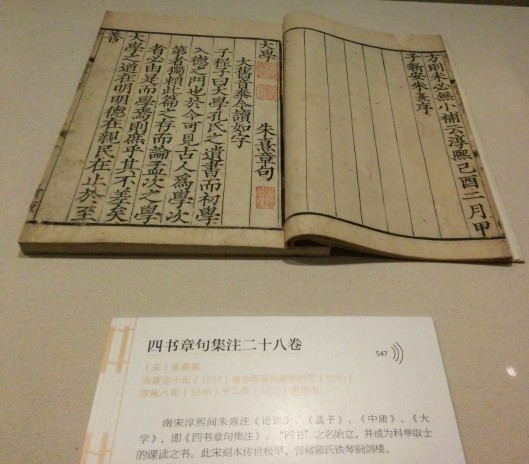 方則未必無小補云淳熙己酉二月甲
子新安朱熹序
大學 朱熹章句
大舊音泰今讀如字
子程子曰大學孔氏之遺書而初學
入德之門也於今可見古人為學次
第者獨賴此篇之存而論孟次之學
者必由是而學焉則庶乎其不差矣
大學之道在明明德在親民在止於至
善
四书章句集注二十八卷
547
（宋）朱熹撰
宋嘉定十年（1217）
淳祐八年（1248）十二年（1252）
南宋淳熙间朱熹注《论语》、《孟子》、《中庸》、《大
学》，即《四书章句集注》，“四书”之名始立，并成为科举取士
的课读之书。此宋刻本传世极罕，曾藏瞿氏铁琴铜剑楼。